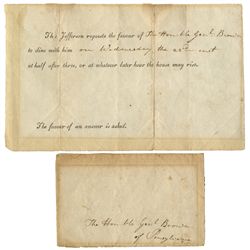 Th: Jefferson requests the favour of The Hon ble Genl. Brown
to dine with him on Wednesday the 22d inst
at half after three, or at whatever later hour the house may rise.
The favour of an answer is asked.
The Hon ble Genl. Brown
of Pennsylvania